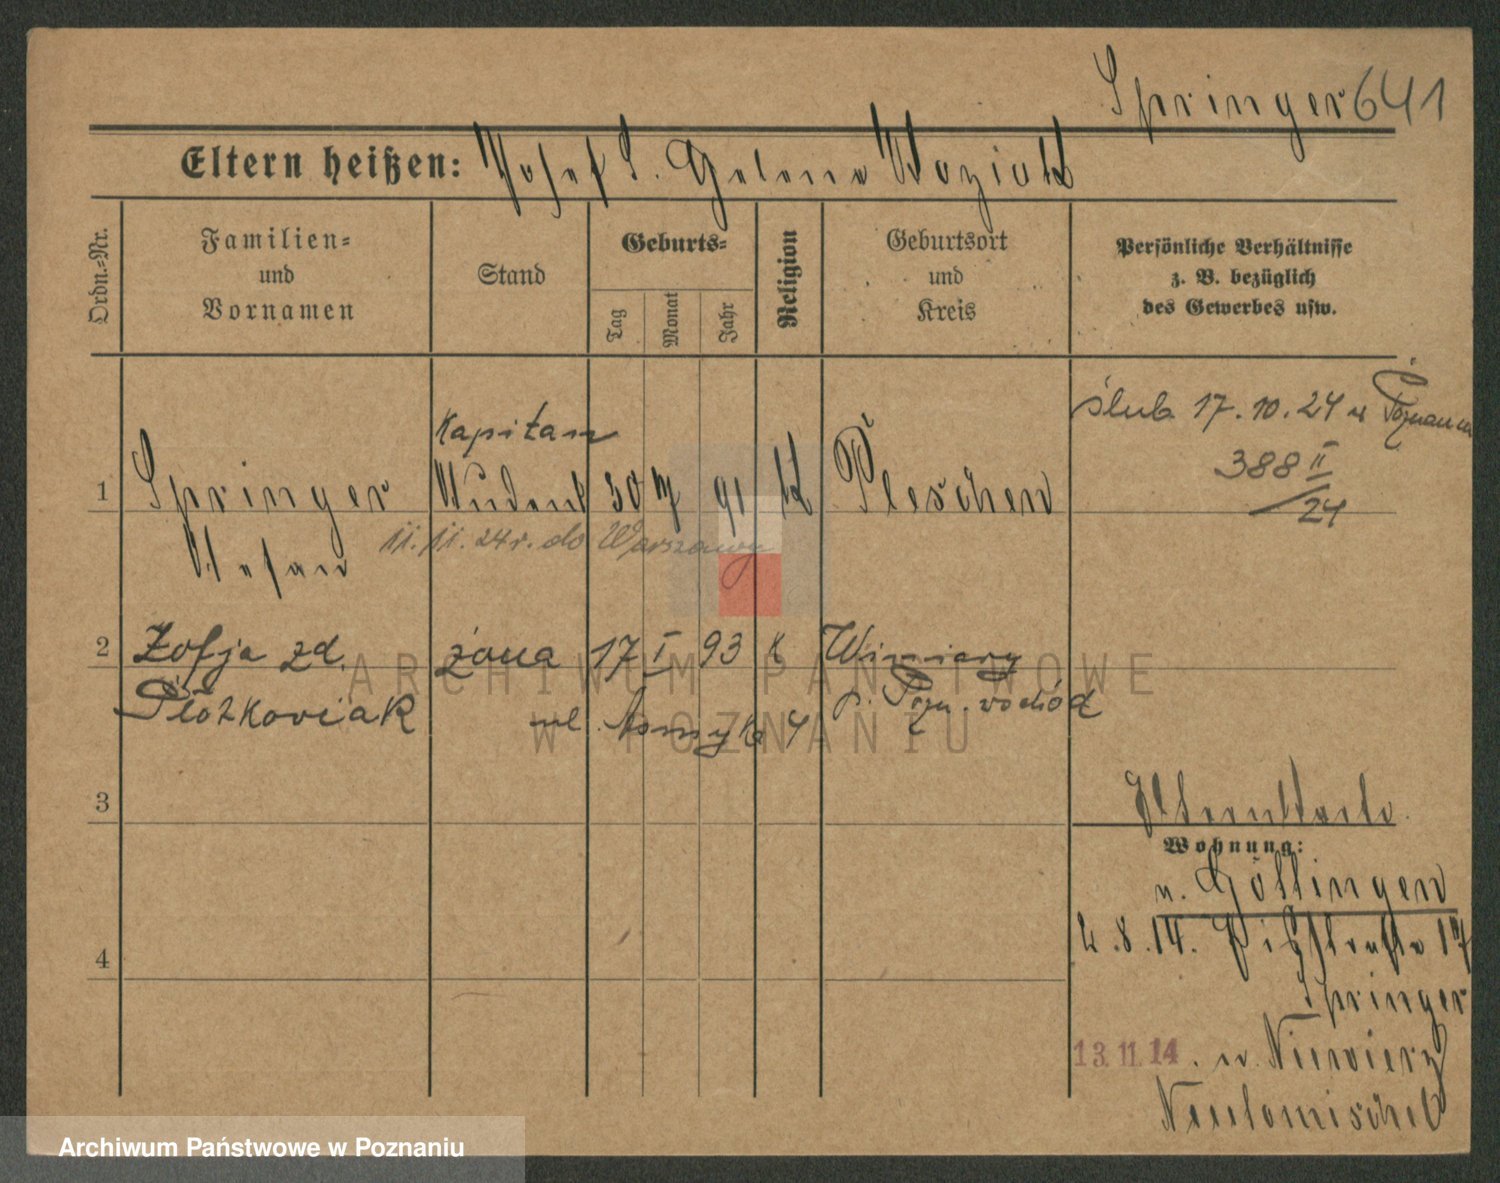 Springer 641
Eltern heißen: Josef S. Helene Woziak
Ordn.=Nr.
Familien=
und
Vornamen
Stand
Geburts=
Tag
Monat
Jahr
Religion
Geburtsort
und
Kreis
Persönliche Verhältnisse
z. B. bezüglich
des Gewerbes usw.
ślub 17.10.24 w Poznaniu
388 II
/24
Kapitan
1 Springer Student 30 7 91 K Pleschen
Stefan
11. 11. 24 r. do Warszawy
2 Zofja zd. żona 17 I 93 K Winiary
p. Pozn. wschód
ul. Asnyka 4
3
Elternkarte.
Wohnung:
n. Göttingen
4
2.8.14. 17
Springer
13.11.14. n. Niewierz
Neutomischel
ARCHIWUM PAŃSTWOWE
W POZNANIU
Archiwum Państwowe w Poznaniu